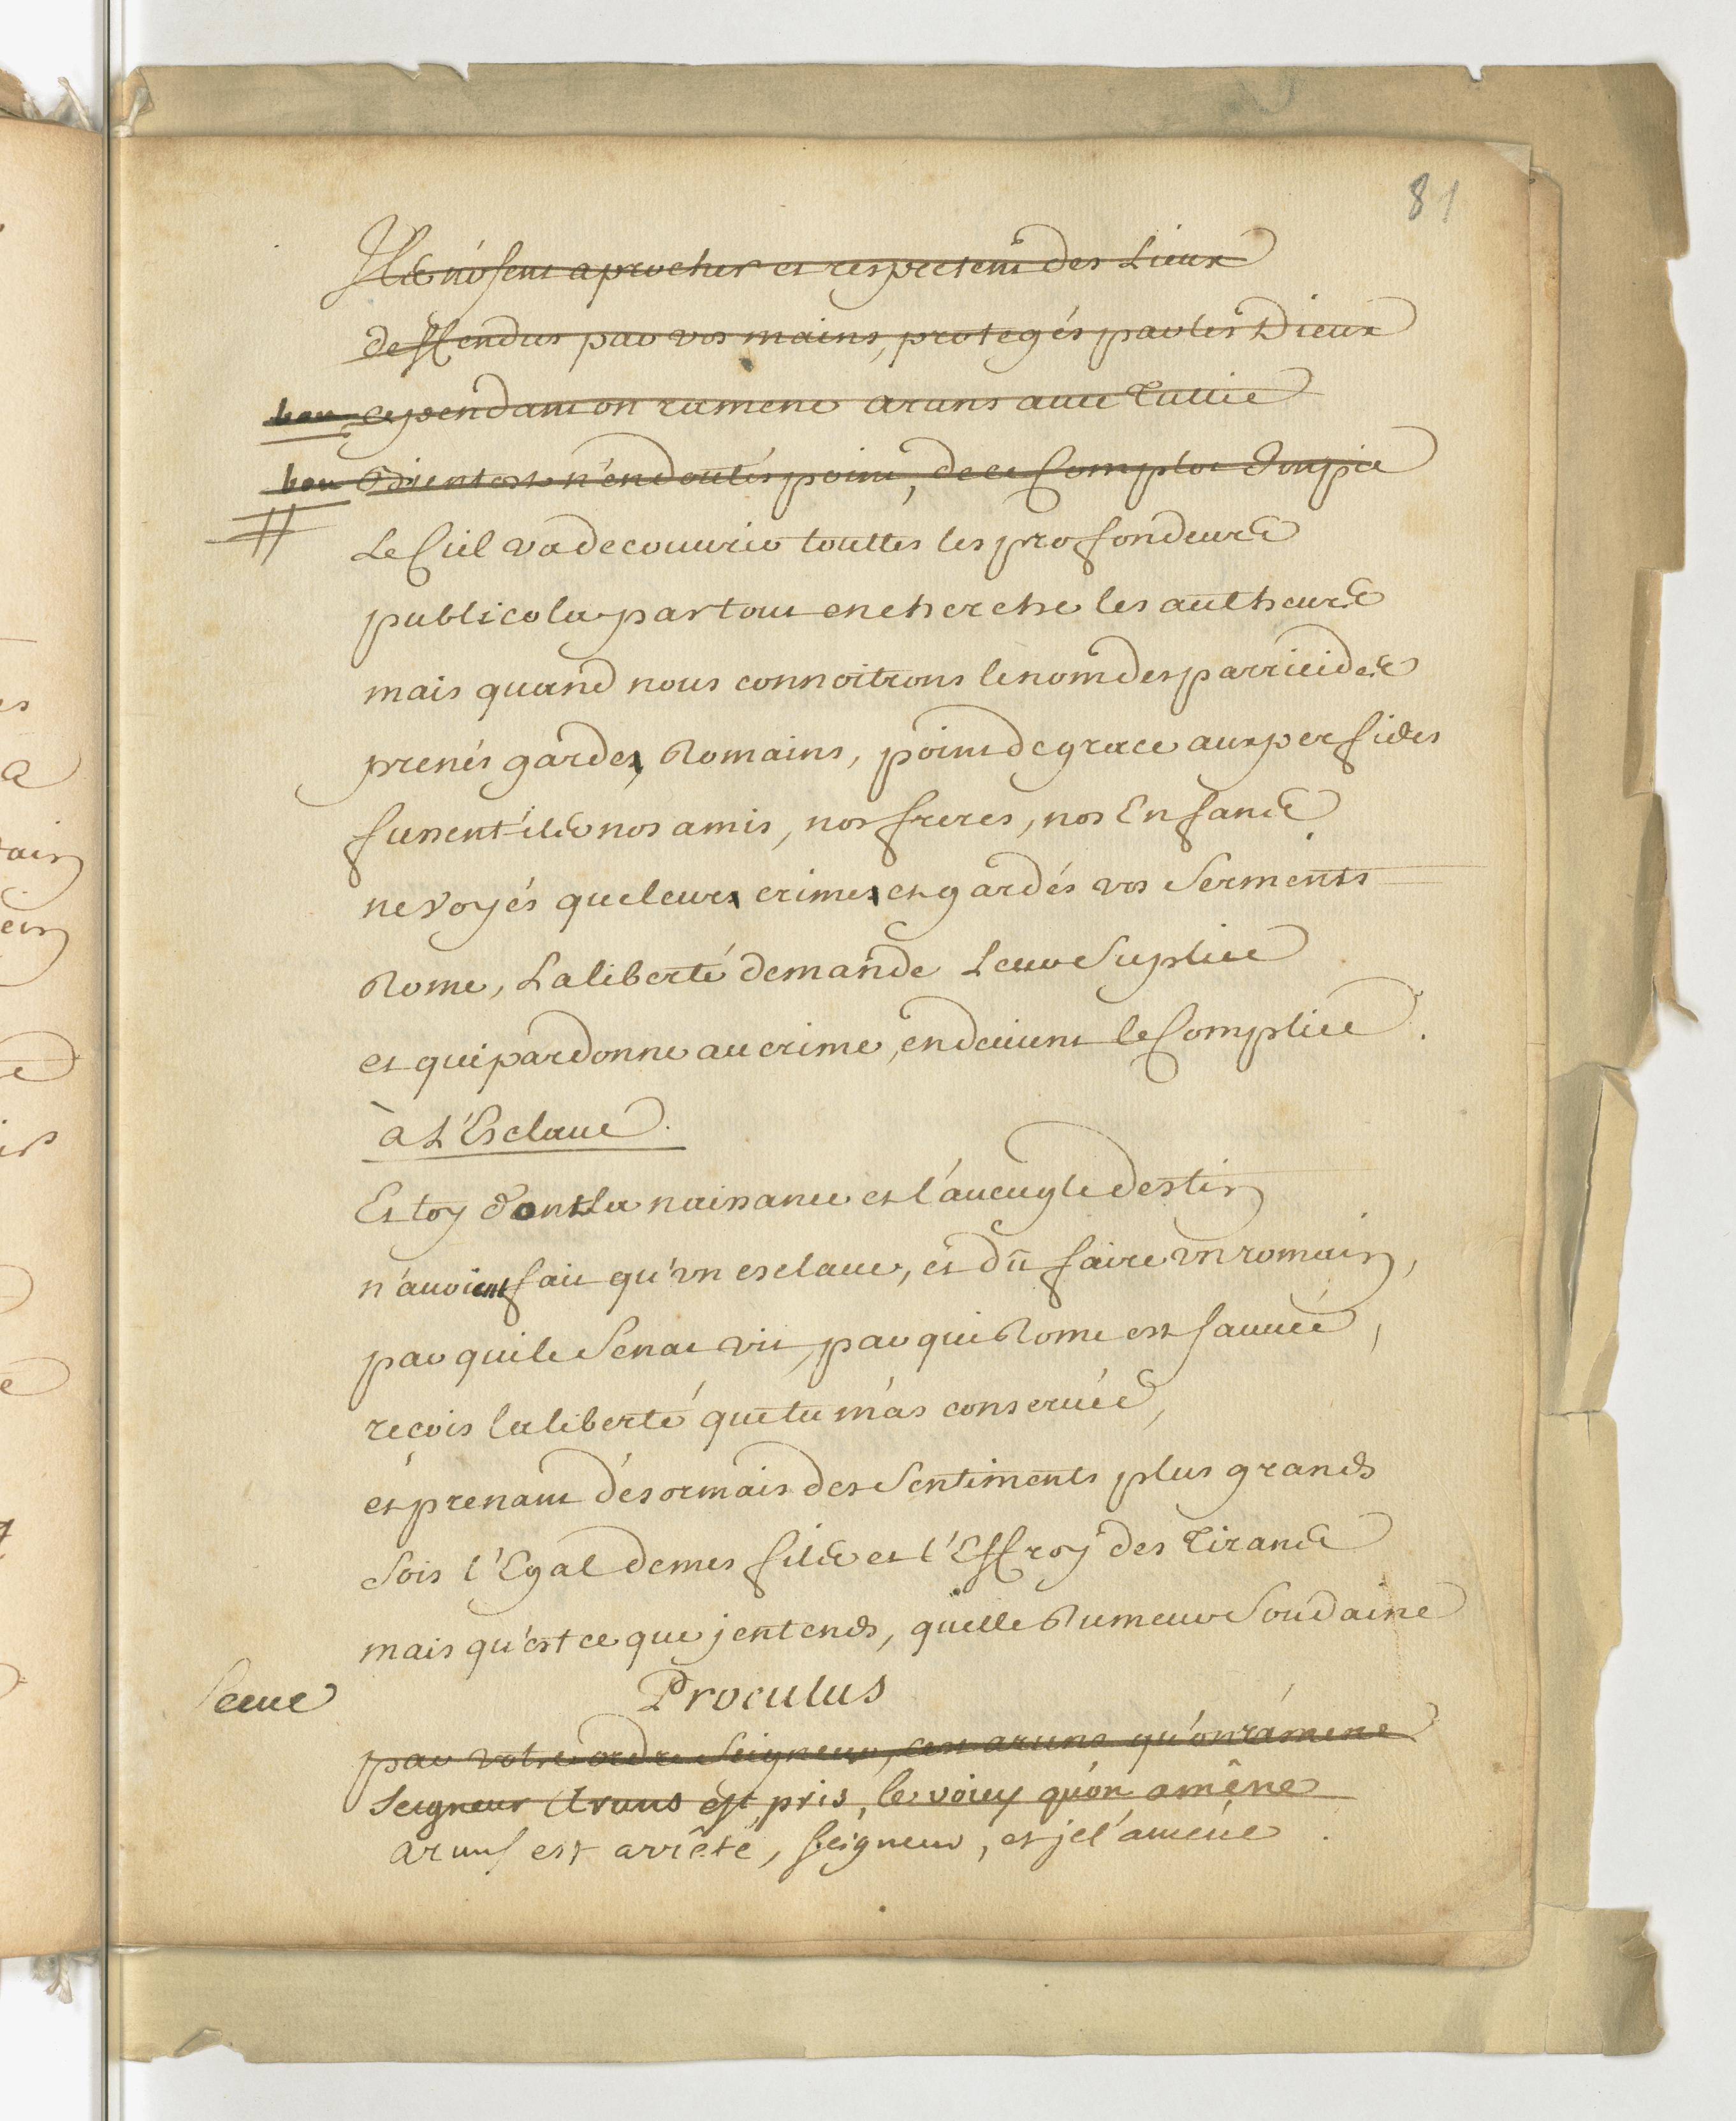 81
Ils n'osent aprocher et respectent des Lieux
deffendus par vos mains, protegés par les Dieux
bon cependant on ramene aruns avec Tullie
bon n'en doutés point, de ce Complot Impie
Le Ciel va decouvrir touttes les profondeurs
publicola partout en cherche les autheurs
mais quand nous connoitrons le nom des parricides
prenés garde, Romains, point de grace aux perfides
fussent ils nos amis, nos freres, nos Enfans
ne voyés que leurs crimes et gardés vos Serments
Rome, La liberté demande Leur Suplice
et qui pardonne au crime, en devient le Complice.
à L'Esclave.
Et toy dont la naissance et l'aveugle destin
n'avoient fait qu'un esclave, et dû faire un romain,
par qui le Senat vit, par qui Rome est sauvée,
reçois la liberté que tu m'as conservée,
et prenant désormais des Sentiments plus grands
Sois l'Egal de mes fils et l'Effroy des Tirans
mais qu'est ce que j'entends, quelle Rumeur Soudaine
Scene Proculus
par votre ordre Seigneur, c'est aruns qu'on ramene
Seigneur Aruns est pris, le voicy qu'on amêne
aruns est arrêté, seigneur, et je l'amene.